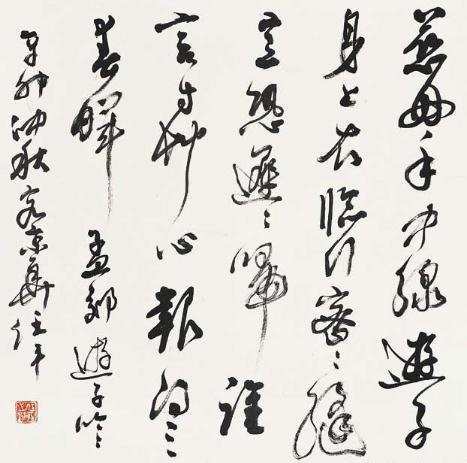 慈母手中線遊子
身上衣臨行密〻縫
意恐遲〻歸誰
言寸艸心報得三
春暉 孟郊遊子吟
辛卯仲秋客京華任平